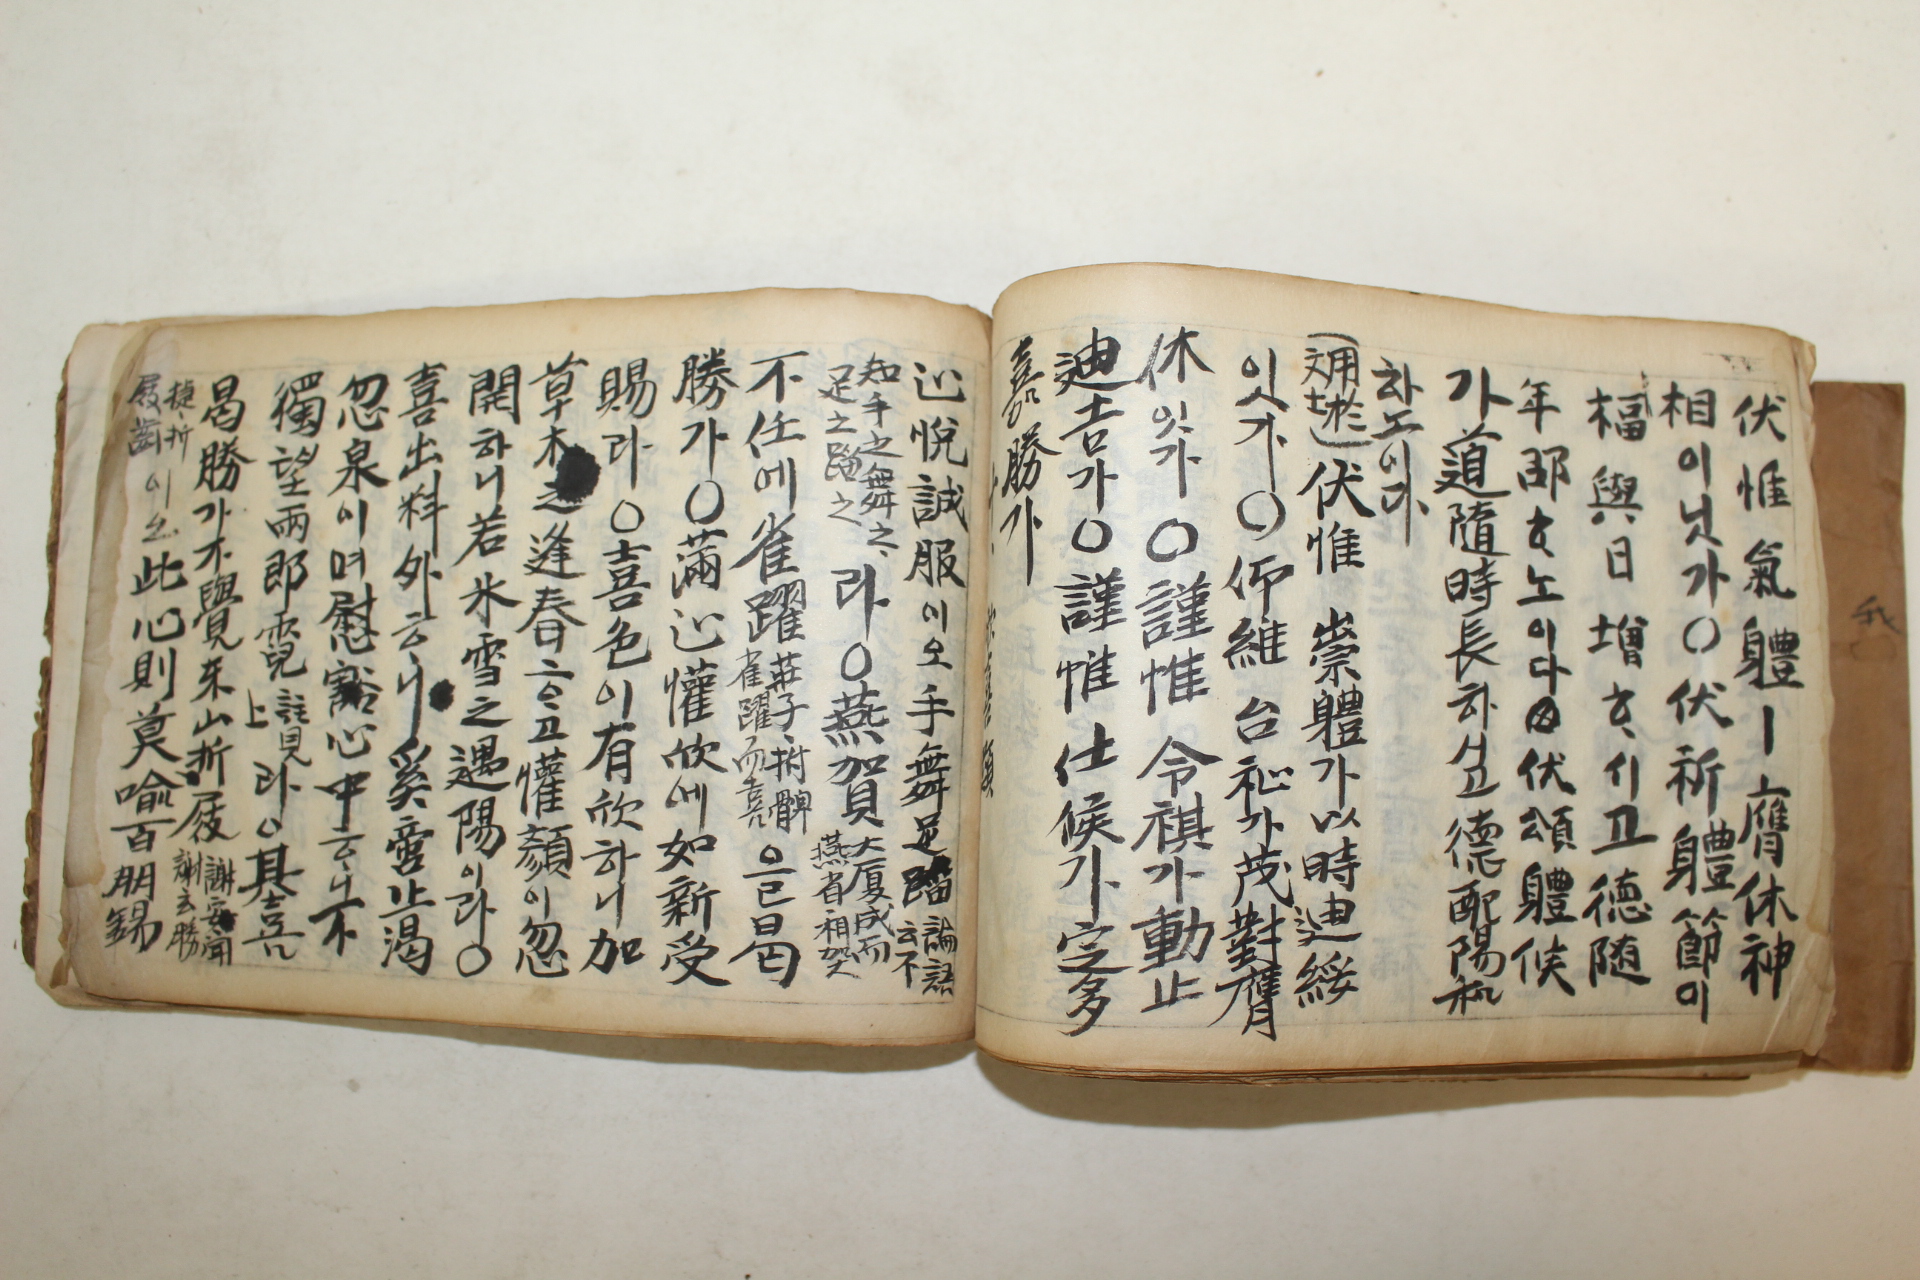 伏惟氣體ㅣ膺休神
相이닛가○伏祈體節이
福與日增ᄒᆞ시고德随
年邵ᄒᆞ노이다 伏頌體候
가道隨時長하시고德配陽和
하노이다
(文用扵士)伏惟 崇體가以時迪綏
잇가○仰維台祉가茂對膺
休잇가○謹惟 令祺가動止
迪吉가○謹惟仕候가定多
嘉勝가
心悅誠服이오手舞足蹈 論語云不
知手之舞之足之蹈之 라○燕賀 大厦成而燕省相賀
不任에雀躍 莊子拊髀雀躍而喜 으로曷
勝가○滿心懽欣에如新受
賜라○喜色이有欣하니加
草木之逢春ᄒᆞ고懽顔이忽
開하니若氷雪之遇陽이라○
喜出料外ᄒᆞ니奚啻止渴
忽泉이며慰豁心中ᄒᆞ니不
獨望兩郎 霓 註見上 라○其喜
曷勝가不覺東山折屐 謝安聞謝玄勝
捷折屐齒 이오此心則莫喩百朋錫